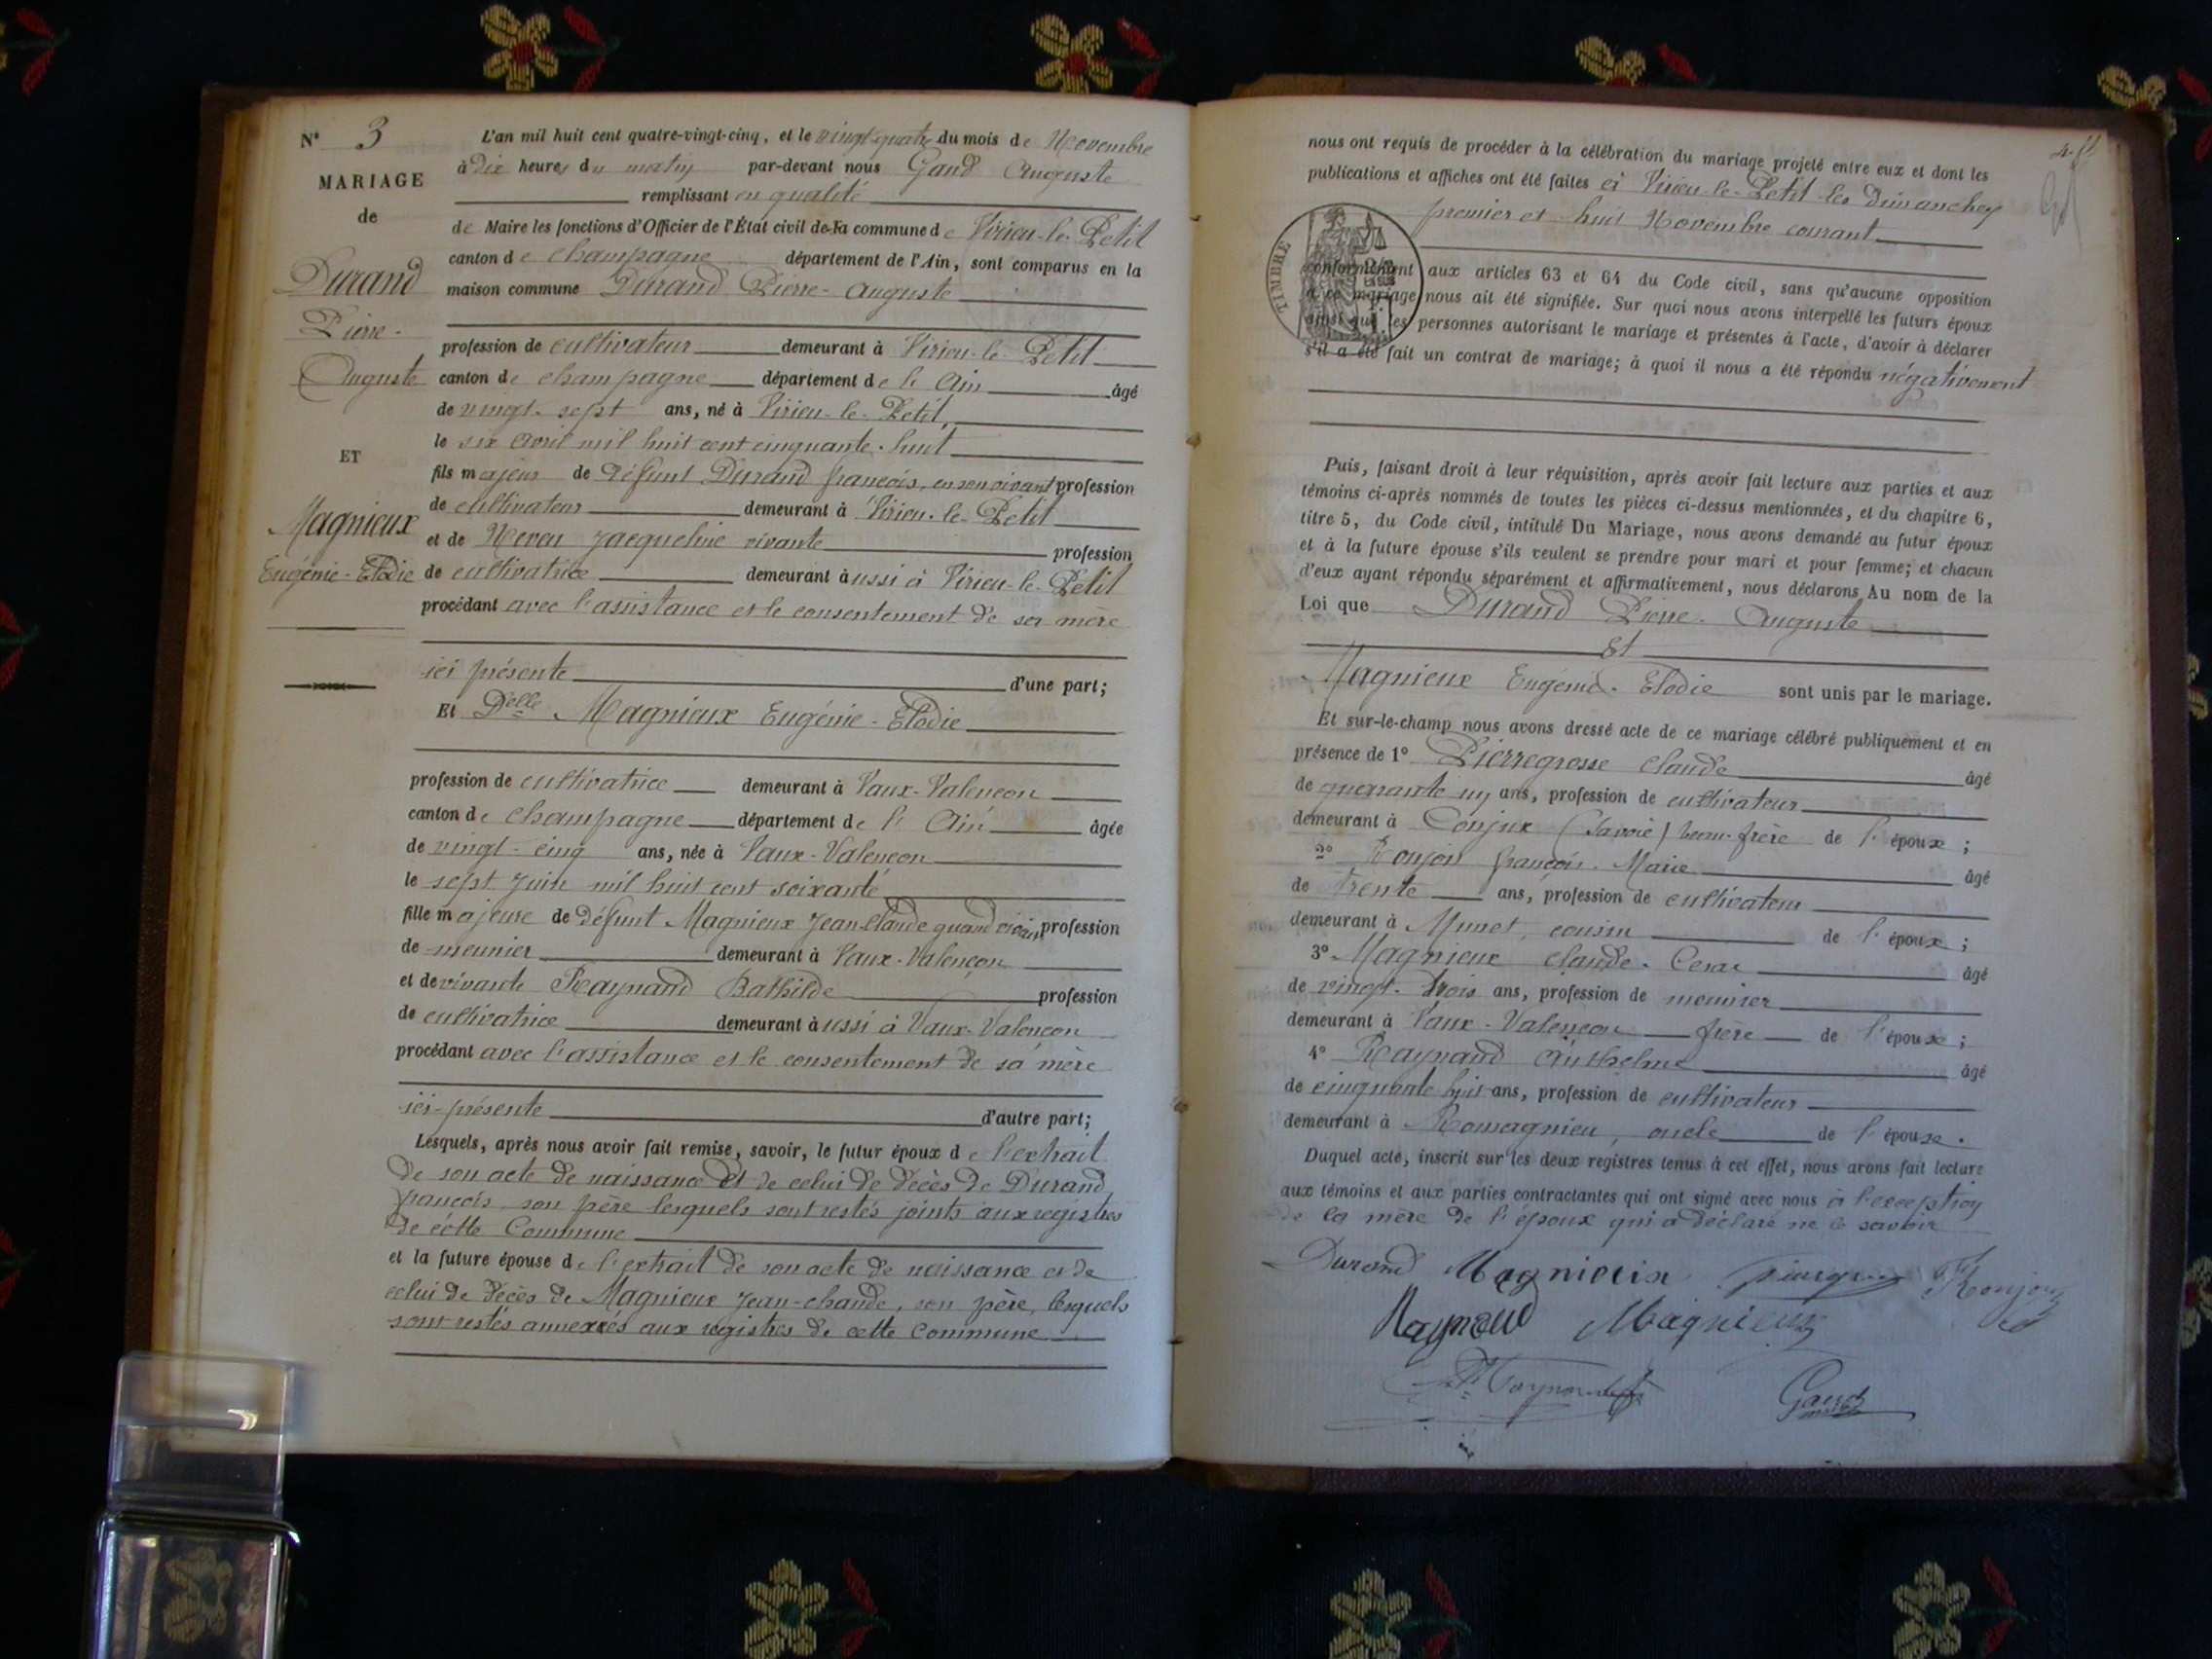 N° 3
MARIAGE
de
Durand
Pierre-
Auguste
ET
Magnieux
Eugénie-Elodie
L'an mil huit cent quatre-vingt-cinq, et le vingt-quatre du mois de Novembre
à dix heures du matin par-devant nous Gand Auguste
remplissant en qualité
de Maire les fonctions d'Officier de l'État civil de la commune de Virieu-le-Petit
canton de Champagne département de l'Ain, sont comparus en la
maison commune Durand Pierre-Auguste
profession de cultivateur demeurant à Virieu-le-Petit
canton de champagne département de l'Ain âgé
de vingt-sept ans, né à Virieu-le-Petit,
le six avril mil huit cent cinquante-huit
fils majeur de défunt Durand françois, en son vivant profession
de cultivateur demeurant à Virieu-le-Petit
et de Neveu Jacqueline vivante profession
de cultivatrice demeurant aussi à Virieu-le-Petit
procédant avec l'assistance et le consentement de sa mère
ici présente d'une part;
Et Delle Magnieux Eugénie-Elodie
profession de cultivatrice demeurant à Vaux-Valençon
canton de champagne département de l'Ain âgée
de vingt-cinq ans, née à Vaux-Valençon
le sept Juin mil huit cent soixante
fille majeure de défunt Magnieux Jean-Claude quand vivait profession
de meunier demeurant à Vaux-Valençon
et de vivante Raynaud Bathilde profession
de cultivatrice demeurant aussi à Vaux-Valençon
procédant avec l'assistance et le consentement de sa mère
ici-présente d'autre part;
Lesquels, après nous avoir fait remise, savoir, le futur époux de l'extrait
de son acte de naissance et de celui de décès de Durand
françois, son père lesquels sont restés joints aux registres
de cette Commune
et la future épouse de l'extrait de son acte de naissance et de
celui de décès de Magnieux Jean-claude, son père, lesquels
sont restés annexés aux registres de cette commune
nous ont requis de procéder à la célébration du mariage projeté entre eux et dont les
publications et affiches ont été faites à Virieu-le-Petit les dimanches
premier et huit Novembre courant
TIMBRE
conformément aux articles 63 et 64 du Code civil, sans qu'aucune opposition
à ce mariage nous ait été signifiée. Sur quoi nous avons interpellé les futurs époux
ainsi que les personnes autorisant le mariage et présentes à l'acte, d'avoir à déclarer
s'il a été fait un contrat de mariage; à quoi il nous a été répondu négativement
Puis, faisant droit à leur réquisition, après avoir fait lecture aux parties et aux
témoins ci-après nommés de toutes les pièces ci-dessus mentionnées, et du chapitre 6,
titre 5, du Code civil, intitulé Du Mariage, nous avons demandé au futur époux
et à la future épouse s'ils veulent se prendre pour mari et pour femme; et chacun
d'eux ayant répondu séparément et affirmativement, nous déclarons Au nom de la
Loi que Durand Pierre-Auguste
Et
Magnieux Eugénie-Elodie sont unis par le mariage.
Et sur-le-champ nous avons dressé acte de ce mariage célébré publiquement et en
présence de 1° Pierregrosse Claude âgé
de quarante un ans, profession de cultivateur
demeurant à Conjux (Savoie) beau-frère de l'époux;
2° Ronjon françois-Marie âgé
de trente ans, profession de cultivateur
demeurant à Munet, cousin de l'époux;
3° Magnieux Claude-Cesar âgé
de vingt-trois ans, profession de meunier
demeurant à Vaux-Valençon frère de l'épouse;
4° Raynaud Anthelme âgé
de cinquante huit ans, profession de cultivateur
demeurant à Romagnieu, oncle de l'épouse.
Duquel acte, inscrit sur les deux registres tenus à cet effet, nous avons fait lecture
aux témoins et aux parties contractantes qui ont signé avec nous à l'exception
de la mère de l'époux qui a déclaré ne le savoir
Durand Magnieux Ronjon
Raynaud Magnieux
Gand